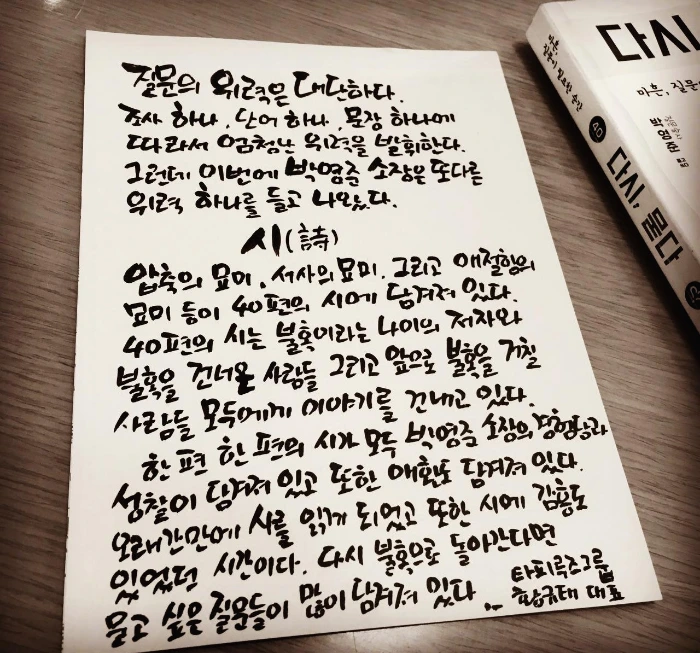 질문의 위력은 대단하다.
조사 하나, 단어 하나, 문장 하나에
따라서 엄청난 위력을 발휘한다.
그런데 이번에 박영준 소장은 또다른
위력 하나를 들고 나왔다.
시(詩)
압축의 묘미, 서사의 묘미, 그리고 애절함의
묘미 등이 40편의 시에 담겨져 있다.
40편의 시는 불혹이라는 나이의 저자와
불혹을 건너온 사람들 그리고 앞으로 불혹을 거칠
사람들 모두에게 이야기를 건네고 있다.
한 편 한 편의 시가 모두 박영준 소장의 경험담과
성찰이 담겨져 있고 또한 애환도 담겨져 있다.
오래간만에 시를 읽게 되었고 또한 시에 감흥도
있었던 시간이다. 다시 불혹으로 돌아간다면
묻고 싶은 질문들이 많이 담겨져 있다...
타피루즈그룹
황규태 대표
다시
마흔, 질문
박영준
다시, 묻다